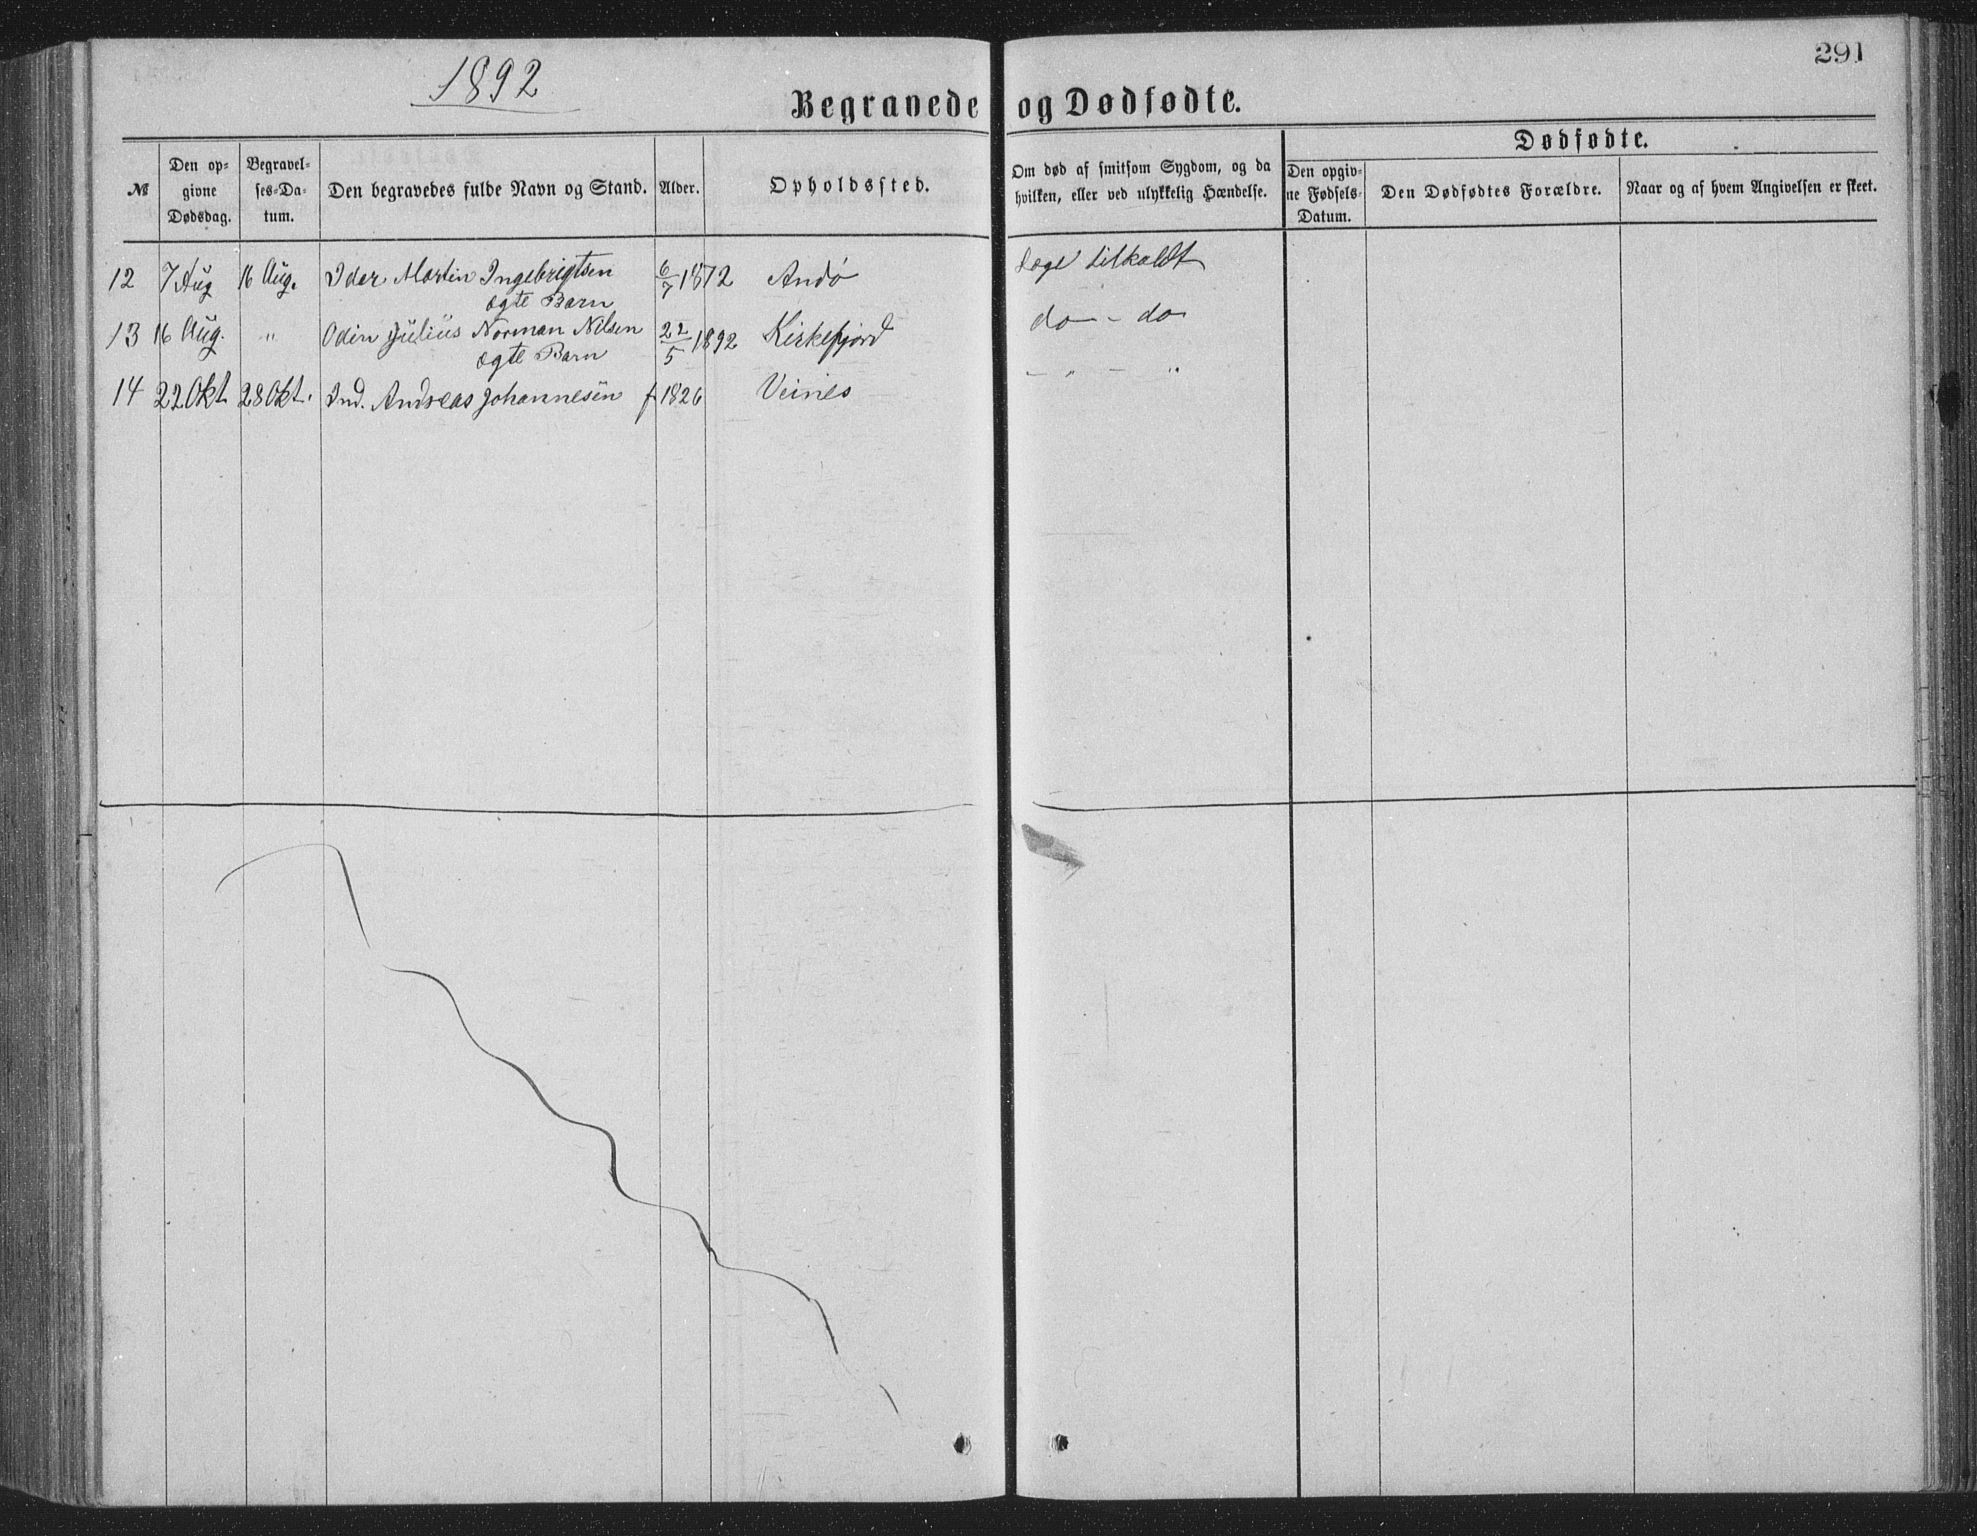 291
1892
Begravede og Dødfødte.
Dødfødte.
№
Den op-
givne
Dødsdag.
Begravel-
ses-Da-
tum.
Den begravedes fulde Navn og Stand.
Alder.
Opholdssted.
Om død af smitsom Sygdom, og da
hvilken, eller ved ulykkelig Hændelse.
Den opgiv-
ne Fødsels-
Datum.
Den Dødfødtes Forældre.
Naar og af hvem Angivelsen er skeet.
12 7 Aug 16 Aug. Martin Ingebrigtsen 6/7 1872 Andø Læge tilkaldt
ægte Barn
13 16 Aug. " Odin Julius Norman Nilsen 22/5 1892 Kirkefjord do - do
ægte Barn
14 22 Okt 28 Okt. Ind. Andreas Johannesen f 1826 Veines - " - "